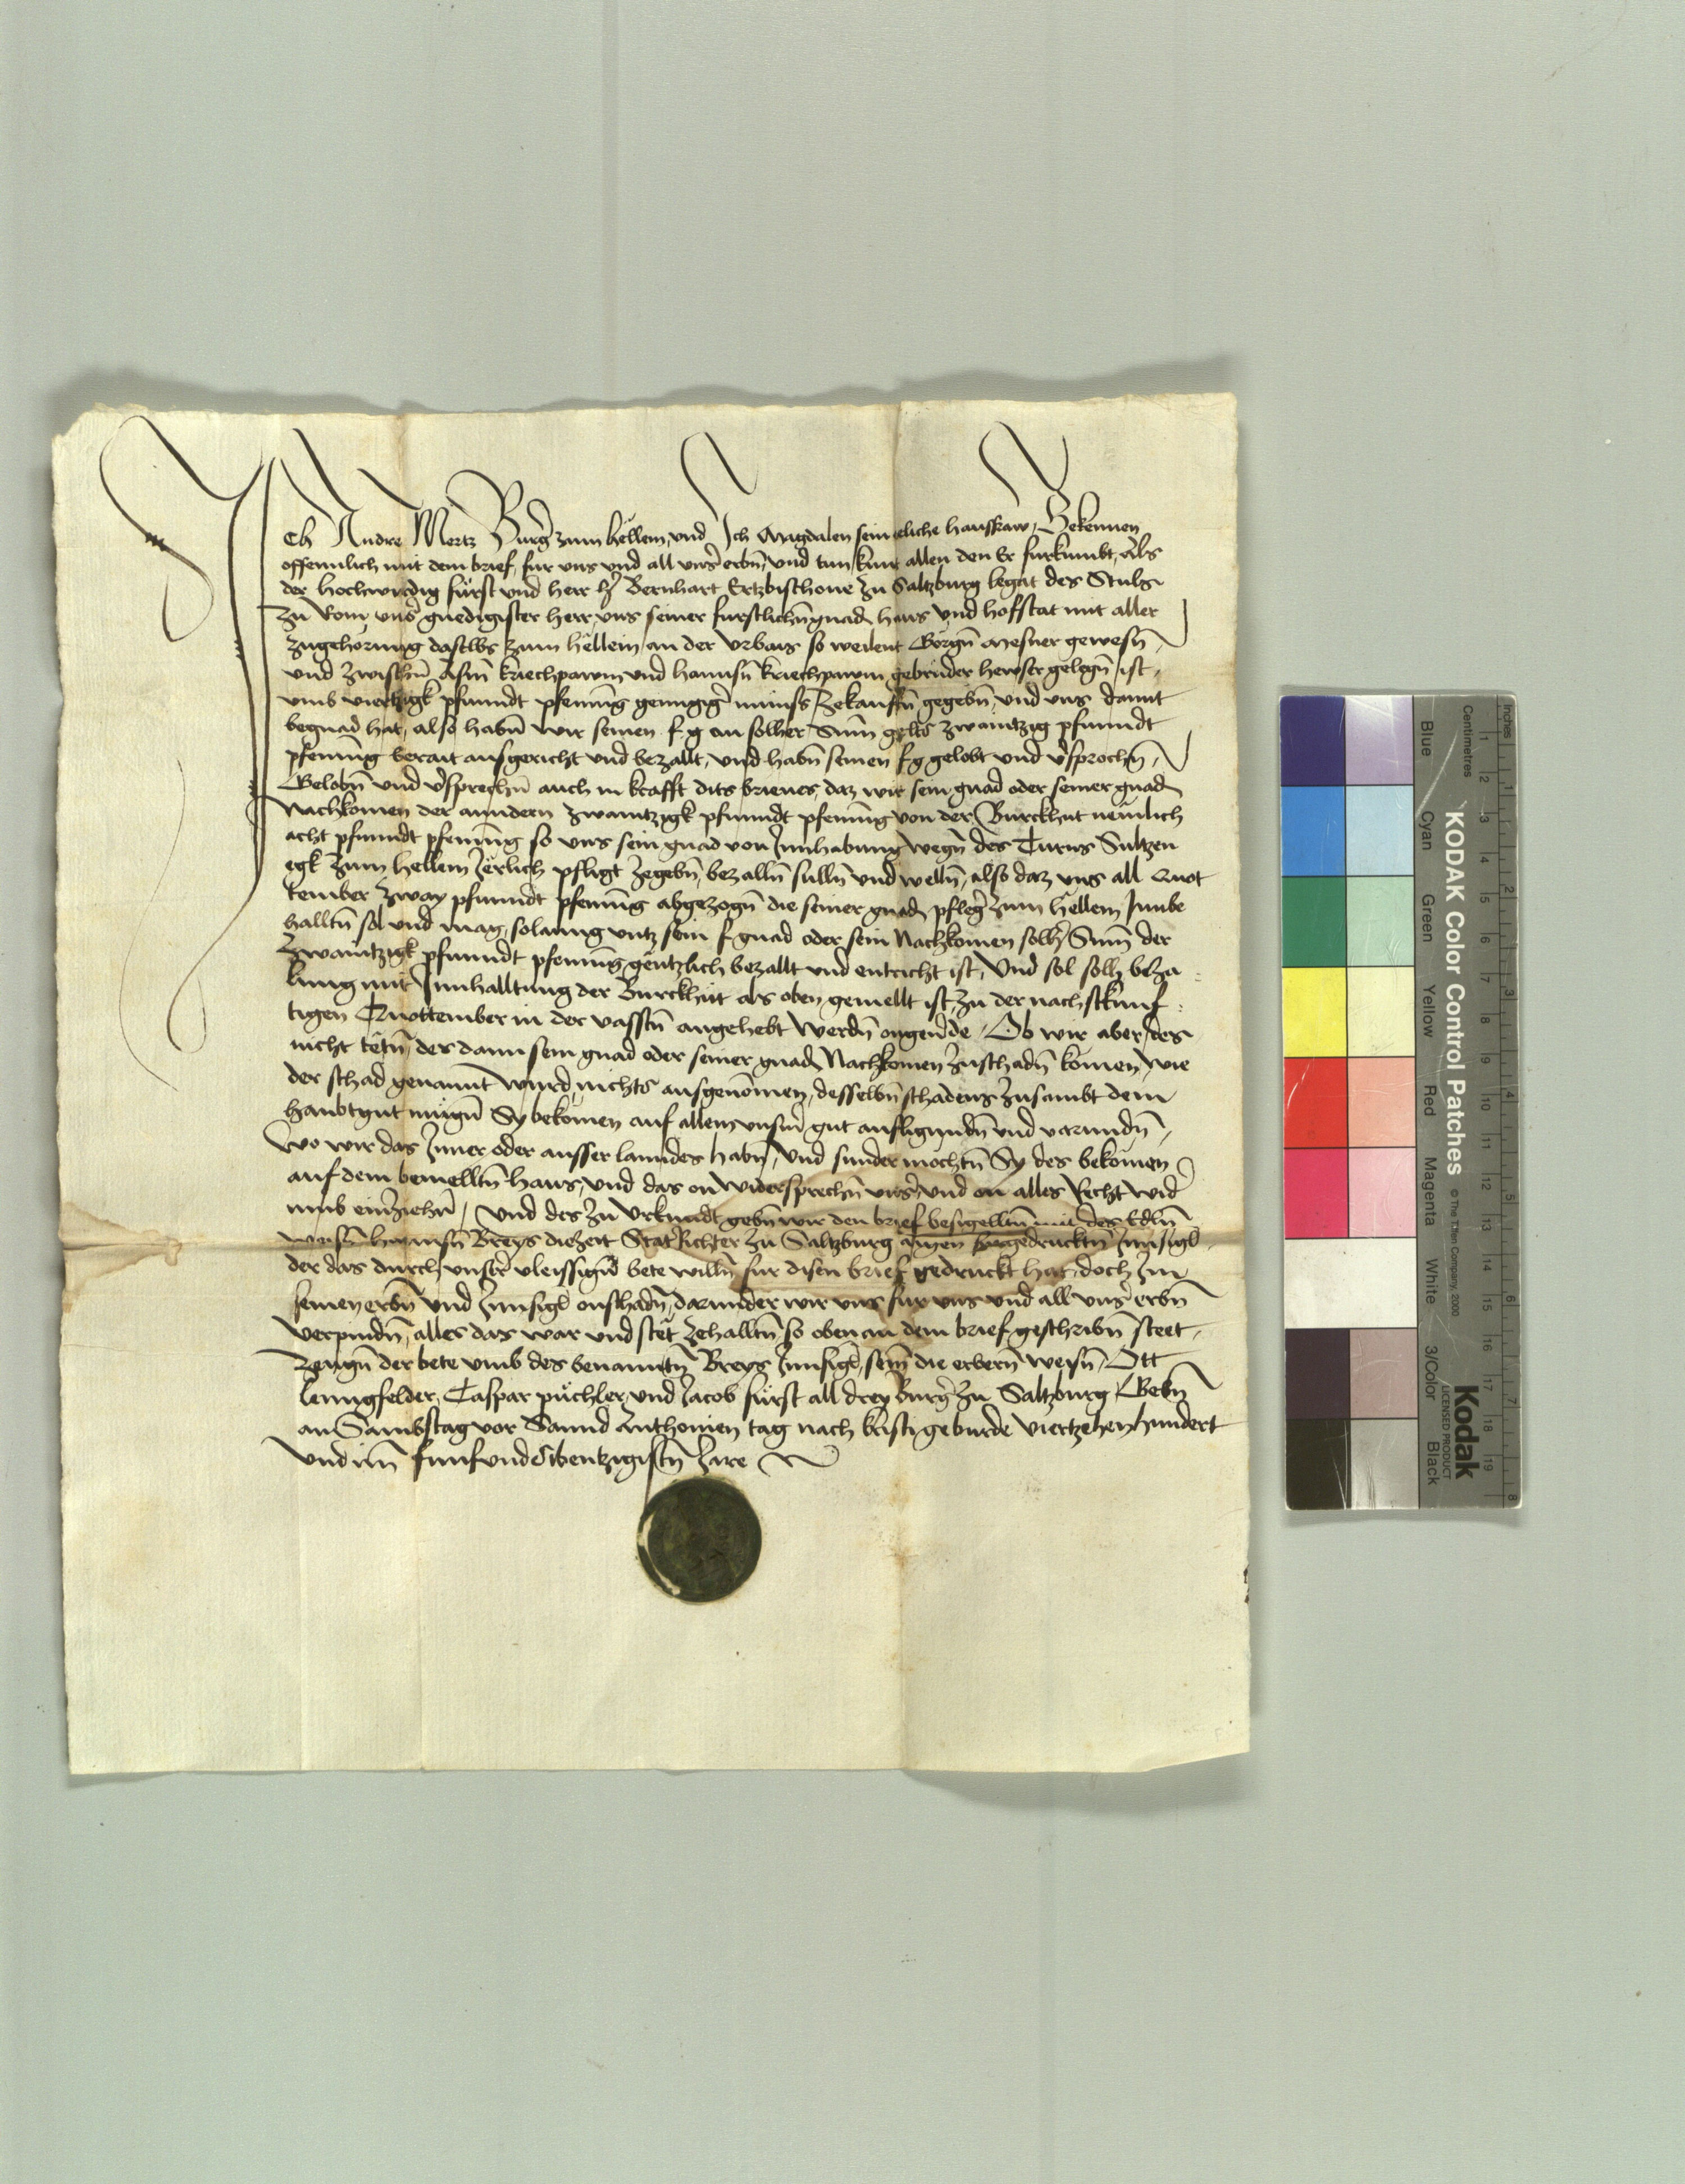 Ich Andre Mertz Burg̃ zum hellein, und Ich Magdalen sein eliche hausfraw, Bekennen
offennlich mit dem brief, fur uns und all unser̃ erbñ, und tun kunt allen den Er furkumbt, Als
der hochwirdig fürst und herr h̃ Bernhart Ertzbischoue zu Saltzburg legat des Stuls
zu Rom, unser̃ gnedigister herr, uns seiner furstlichñ gnad haus und hofstat mit aller
zugehörung daselbs zum hellein, an der urbars so weilent Görgñ Mesner gewesñ,
und zwischñ Asm̃ kriechpawm und hannsñ kriechpawm gebruder hewser gelegñ ist,
umb viertzigk pfunndt pfening gemiger̃ müniss zekauffñ gegebñ, und uns damit
begnad hat, also habñ wir seinen f g an solher Sum̃ gelts zwaintzig pfunndt
pfening berait ausgericht und bezallt, und habñ seinen f g gelobt und v̉sprochñ,
Gelobñ und v̉sprechñ auch in krafft dits brieues, daz wir sein gnad oder seiner gnad
Nachkomen der anndern zwaintzigk pfunndt pfening von der Burckhut nemlich
acht pfunndt pfening so uns sein gnad von Innhabung wegñ des Turns Sultzen
egk zum hellein Jerlich pfligt zegebñ, bezallñ sullñ und wellñ, also daz uns all Quot
tember zway pfunndt pfening abgezogñ die seiner gnad pfleger̃ zum hellein Innbe
halltñ sol und mag, solanng untz sein f gnad oder sein Nachkomen solh̃ Sum̃ der
zwaintzigk pfunndt pfening gentzlich bezallt und entricht ist, Und sol solh beza
lung mit Innhalltung der Burckhut als oben gemellt ist zu der nachstkunf
tigen Quottember in der vasstñ angehebt werdñ ongeuerde, Ob wir aber des
nicht tetñ, des dann sein gnad oder seiner gnad Nachkomen zuschadñ komen, wie
der schad genannt wurd, nichts ausgenomen, desselbñ schadens zusambt dem
haubtgut mügñ Sy bekomen auf allem unserm̃ gut aufligundñ und varundñ,
wo wir das Inner oder ausser lanndes habñ, und sunder möchtñ Sy des bekomen
auf dem bemelltñ haws, und das on widersprechñ unser̃, und on alles Recht wid̃
umb einziehñ, Und des zu Urkundt gebñ wir den brief besigelltñ mit des Edlñ
weisñ hannsñ Breys diezeit Stat Richter zu Saltzburg aigen furgedrucktñ Innsigl
der das durch unser̃ vleissigñ bete willñ fur disen brief gedruckt hat, doch Im
seinen erbñ und Innsigl onschadñ, darunder wir uns fur uns und all unser̃ erbñ
verpindñ, alles das war und stet zehalltñ so oben an dem brief geschribñ steet,
zeugñ der bete umb des benanntñ Breys Innsigl, sein die erbern weisñ, Ott
lenngfelder, Caspar püchler, und Jacob fürst all drey Burger̃ zu Saltzburg, Gebñ
an Sambstag vor Sannd Anthonien tag nach kristi geburde viertzehenhundert
und im̃ funfundSibentzigistñ Jare
KODAK Color Control Patches
© The Tiffen Company, 2000
Kodak
LICENSED PRODUCT
Inches 1 2 3 4 5 6 7 8
Centimetres 1 2 3 4 5 6 7 8 9 10 11 12 13 14 15 16 17 18 19
Blue
Cyan
Green
Yellow
Red
Magenta
White
3/Color
Black